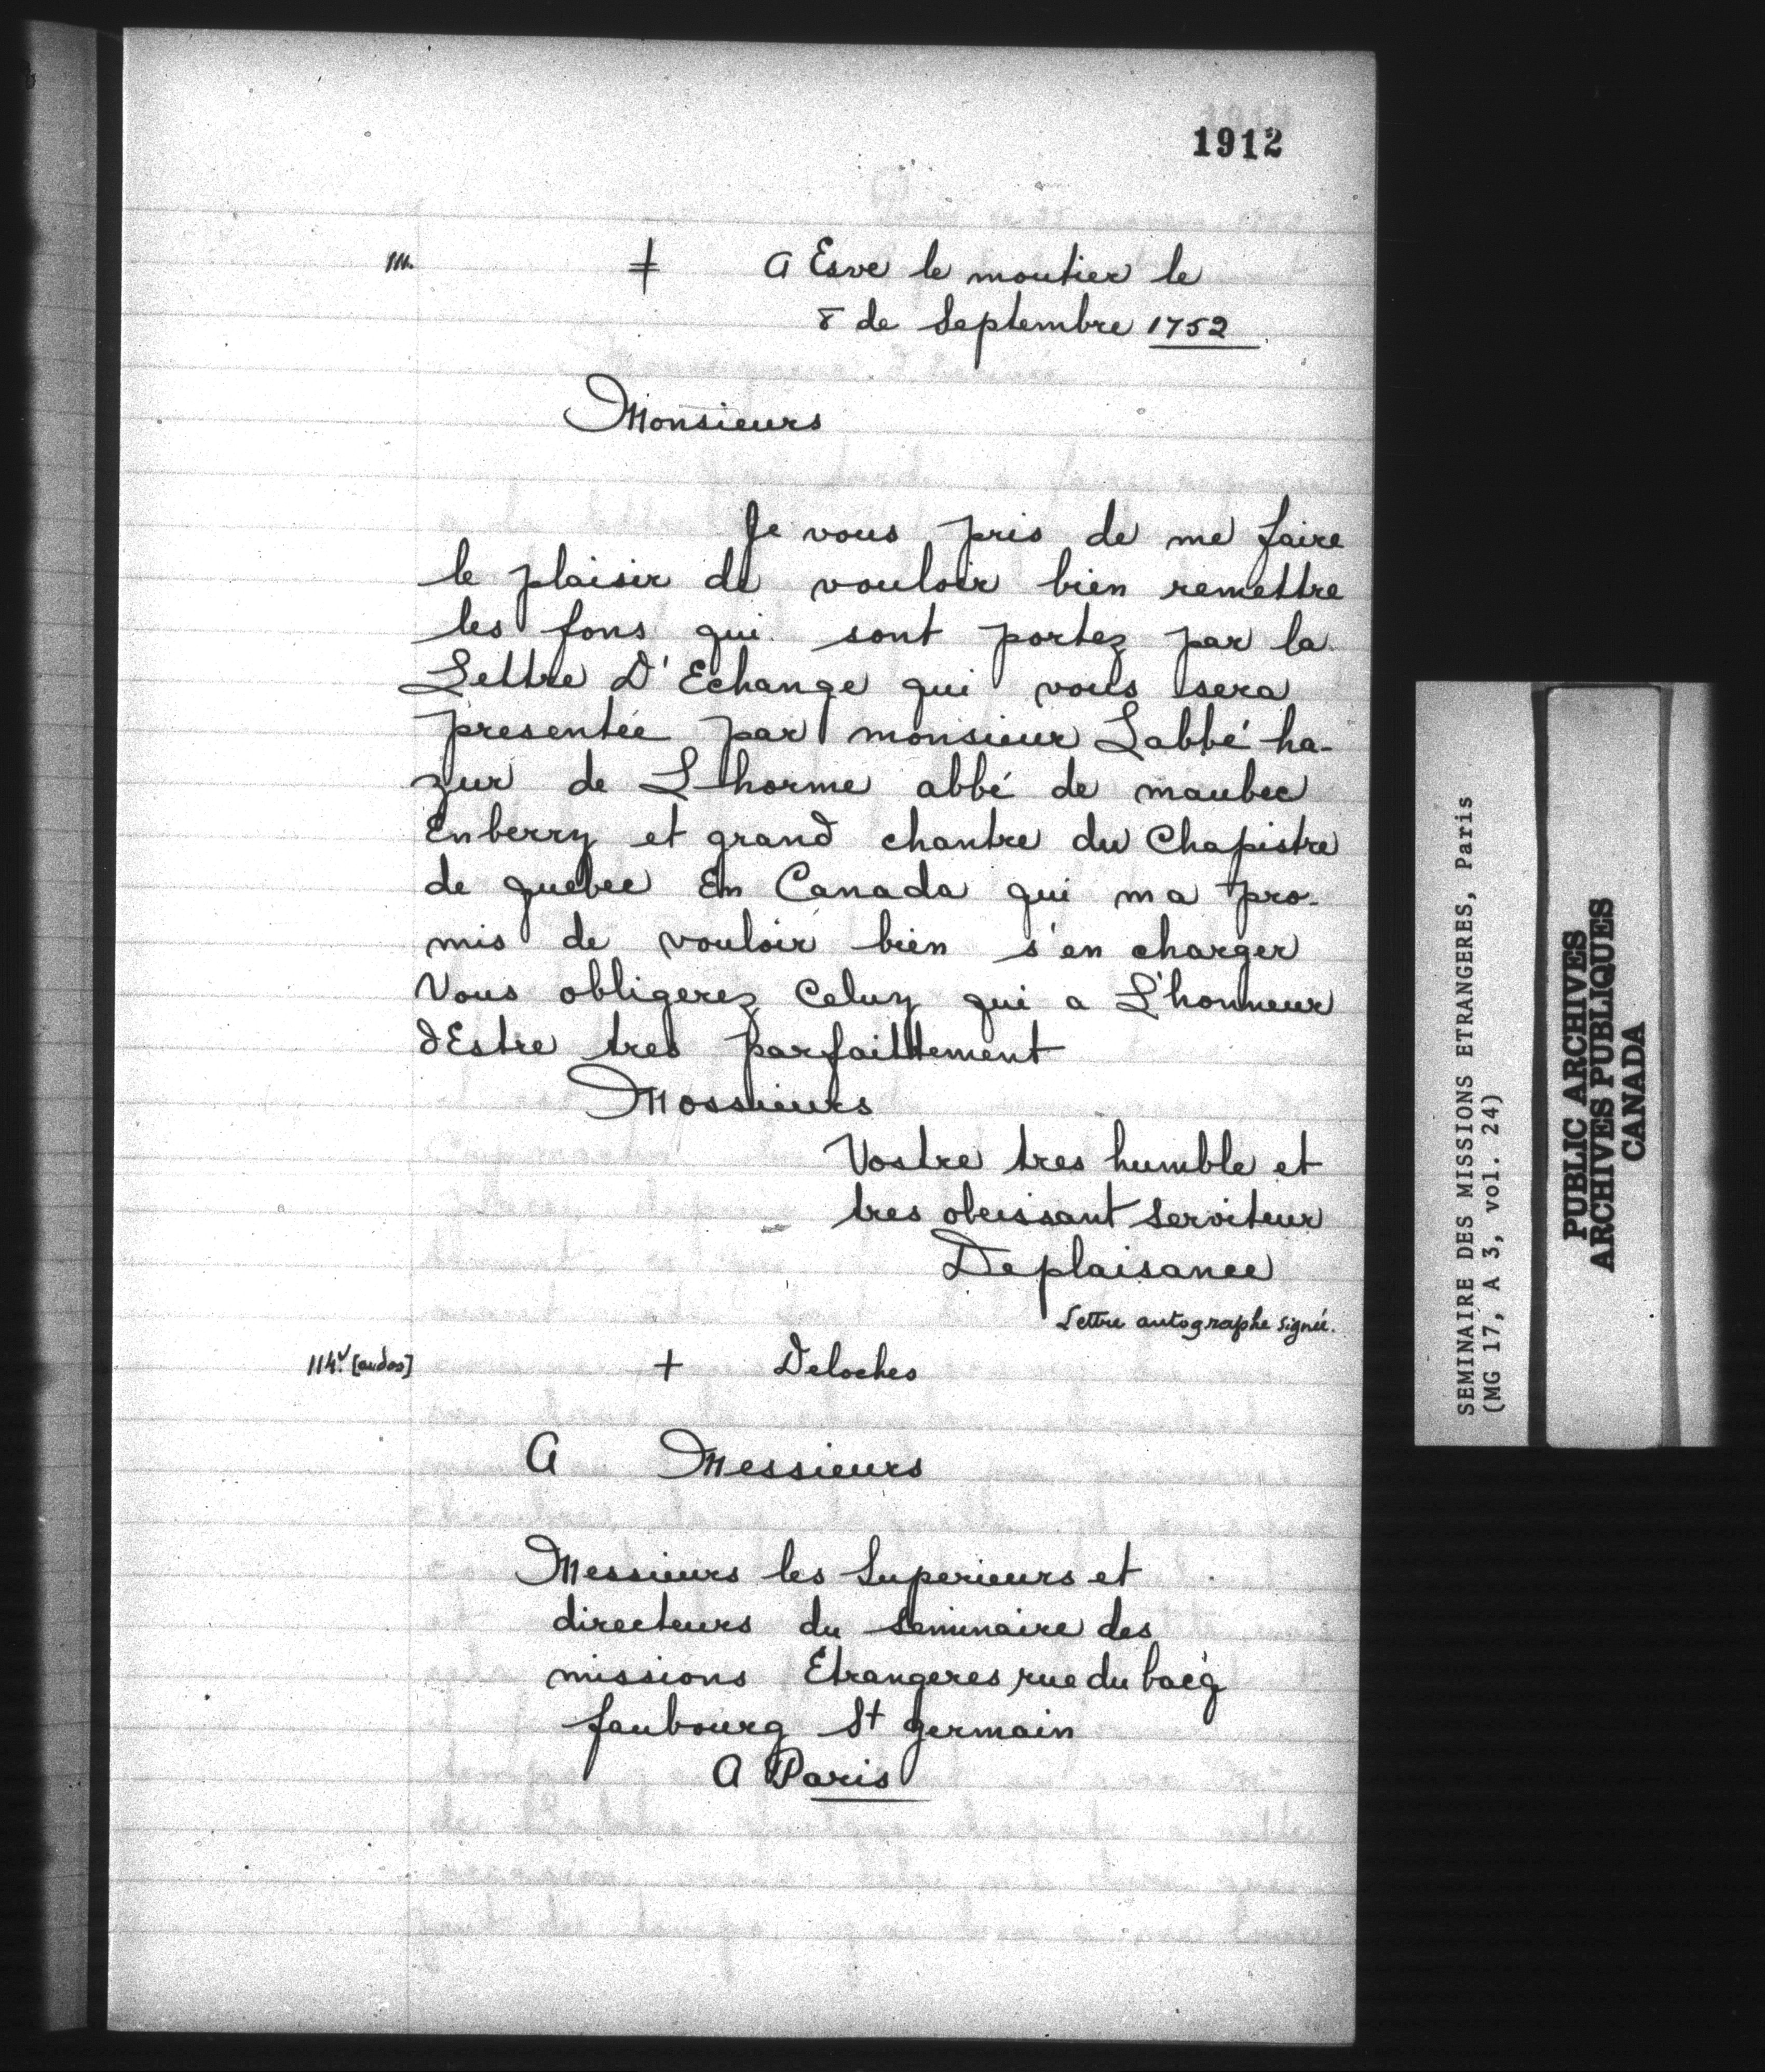 1912
m. ‡ A Esve le moutier le
8 de Septembre 1752
Monsieurs
Je vous pris de me faire
le plaisir de vouloir bien remettre
les fons qui sont portez par la
Lettre D'Echange qui vous sera
presentée par monsieur Labbé ha-
zur de L horme abbé de maubec
Enberry et grand chantre du Chapistre
de quebec En Canada qui ma pro-
mis de vouloir bien s'en charger
Vous obligerez Celuy qui a L'honneur
dEstre tres parfaittement
Mossieurs
Vostre tres humble et
tres obeissant serviteur
Deplaisance
Lettre autographe signée.
114v [au dos] + Deloches
A Messieurs
Messieurs les Superieurs et
directeurs du seminaire des
missions Etrangeres rue du bacq
faubourg St germain
A Paris
SEMINAIRE DES MISSIONS ETRANGERES, Paris
(MG 17, A 3, vol. 24)
PUBLIC ARCHIVES
ARCHIVES PUBLIQUES
CANADA